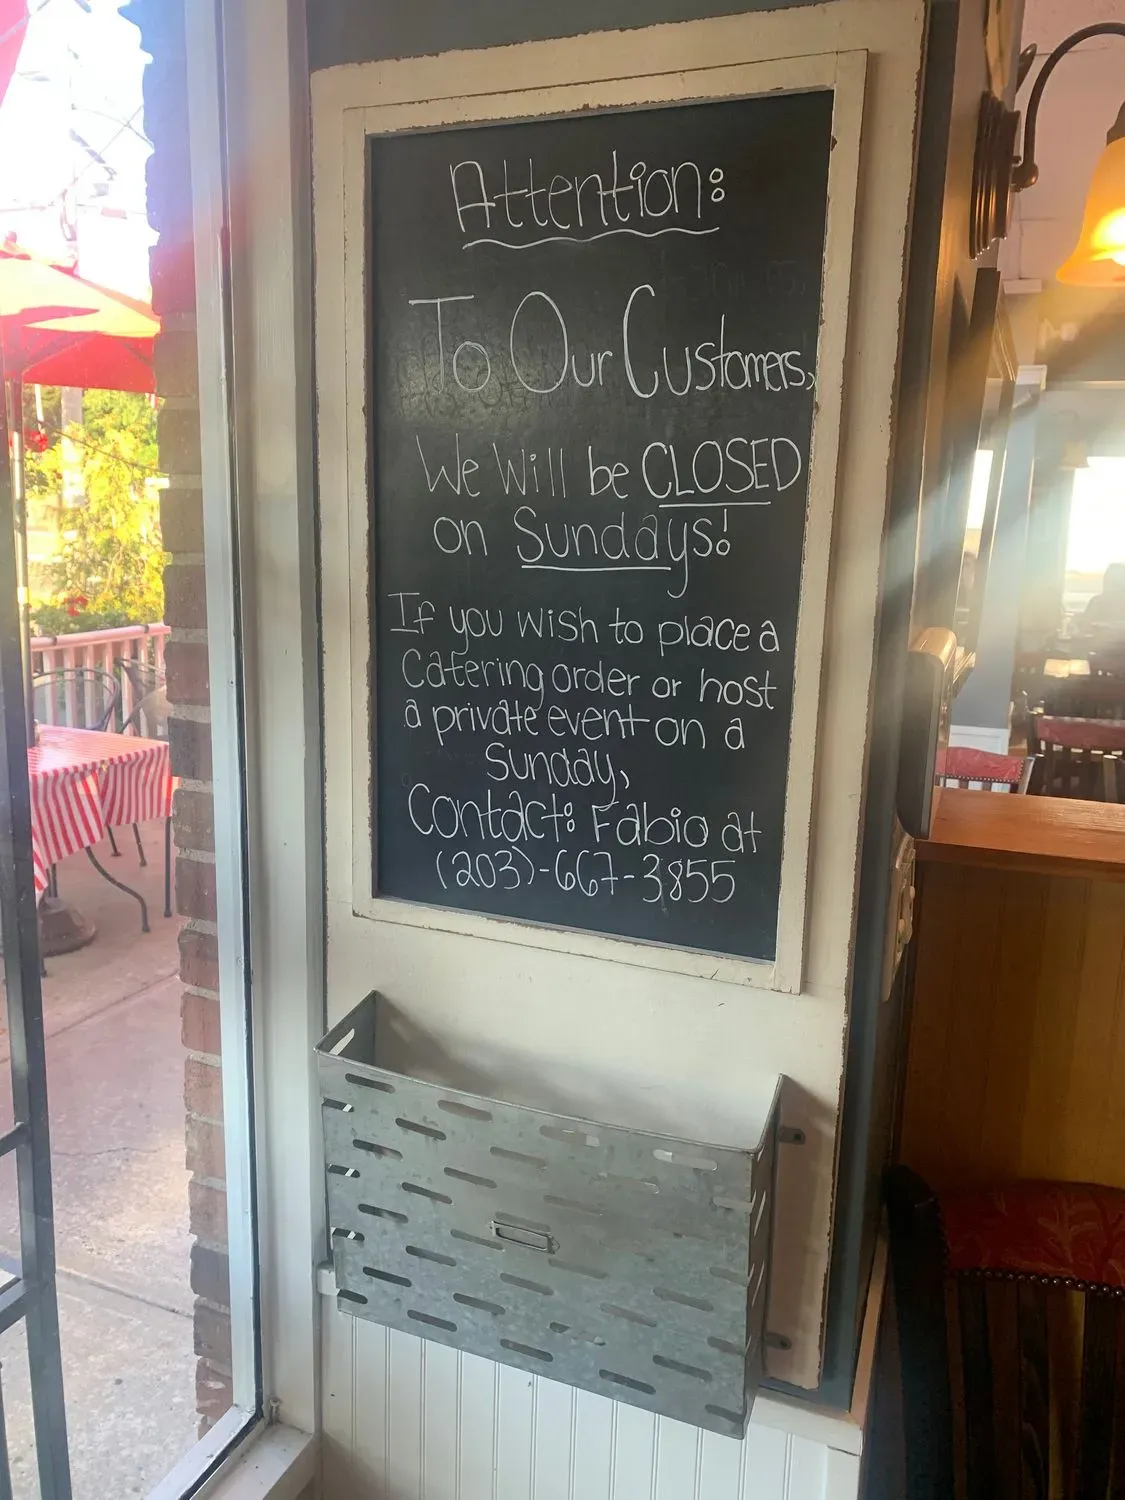 Attention:
To Our Customers,
We Will be CLOSED
on Sundays!
If you wish to place a
Catering order or host
a private event on a
Sunday,
Contact: Fabio at
(203)-667-3855